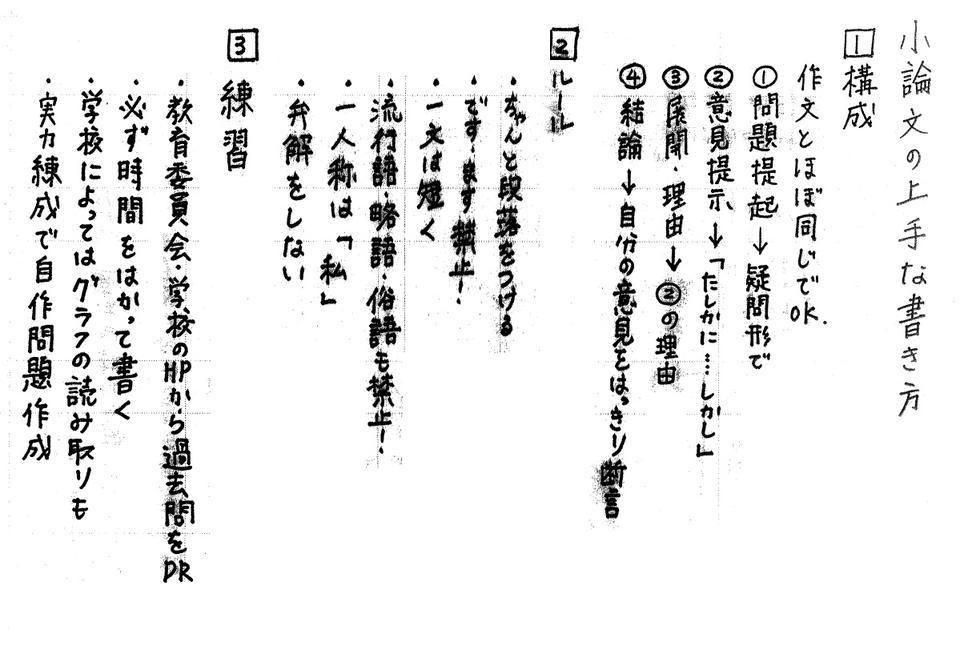 小論文の上手な書き方
1 構成
作文とほぼ同じでOK.
① 問題提起→疑問形で
② 意見提示→「たしかに……しかし」
③ 展開・理由→②の理由
④ 結論→自分の意見をはっきり断言
2 ルール
・ちゃんと段落をつける
・です・ます禁止!
・一文は短く
・流行語・略語・俗語も禁止!
・一人称は「私」
・弁解をしない
3 練習
・教育委員会・学校のHPから過去問をDR
・必ず時間をはかって書く
・学校によってはグラフの読み取りも
・実力練成で自作問題作成